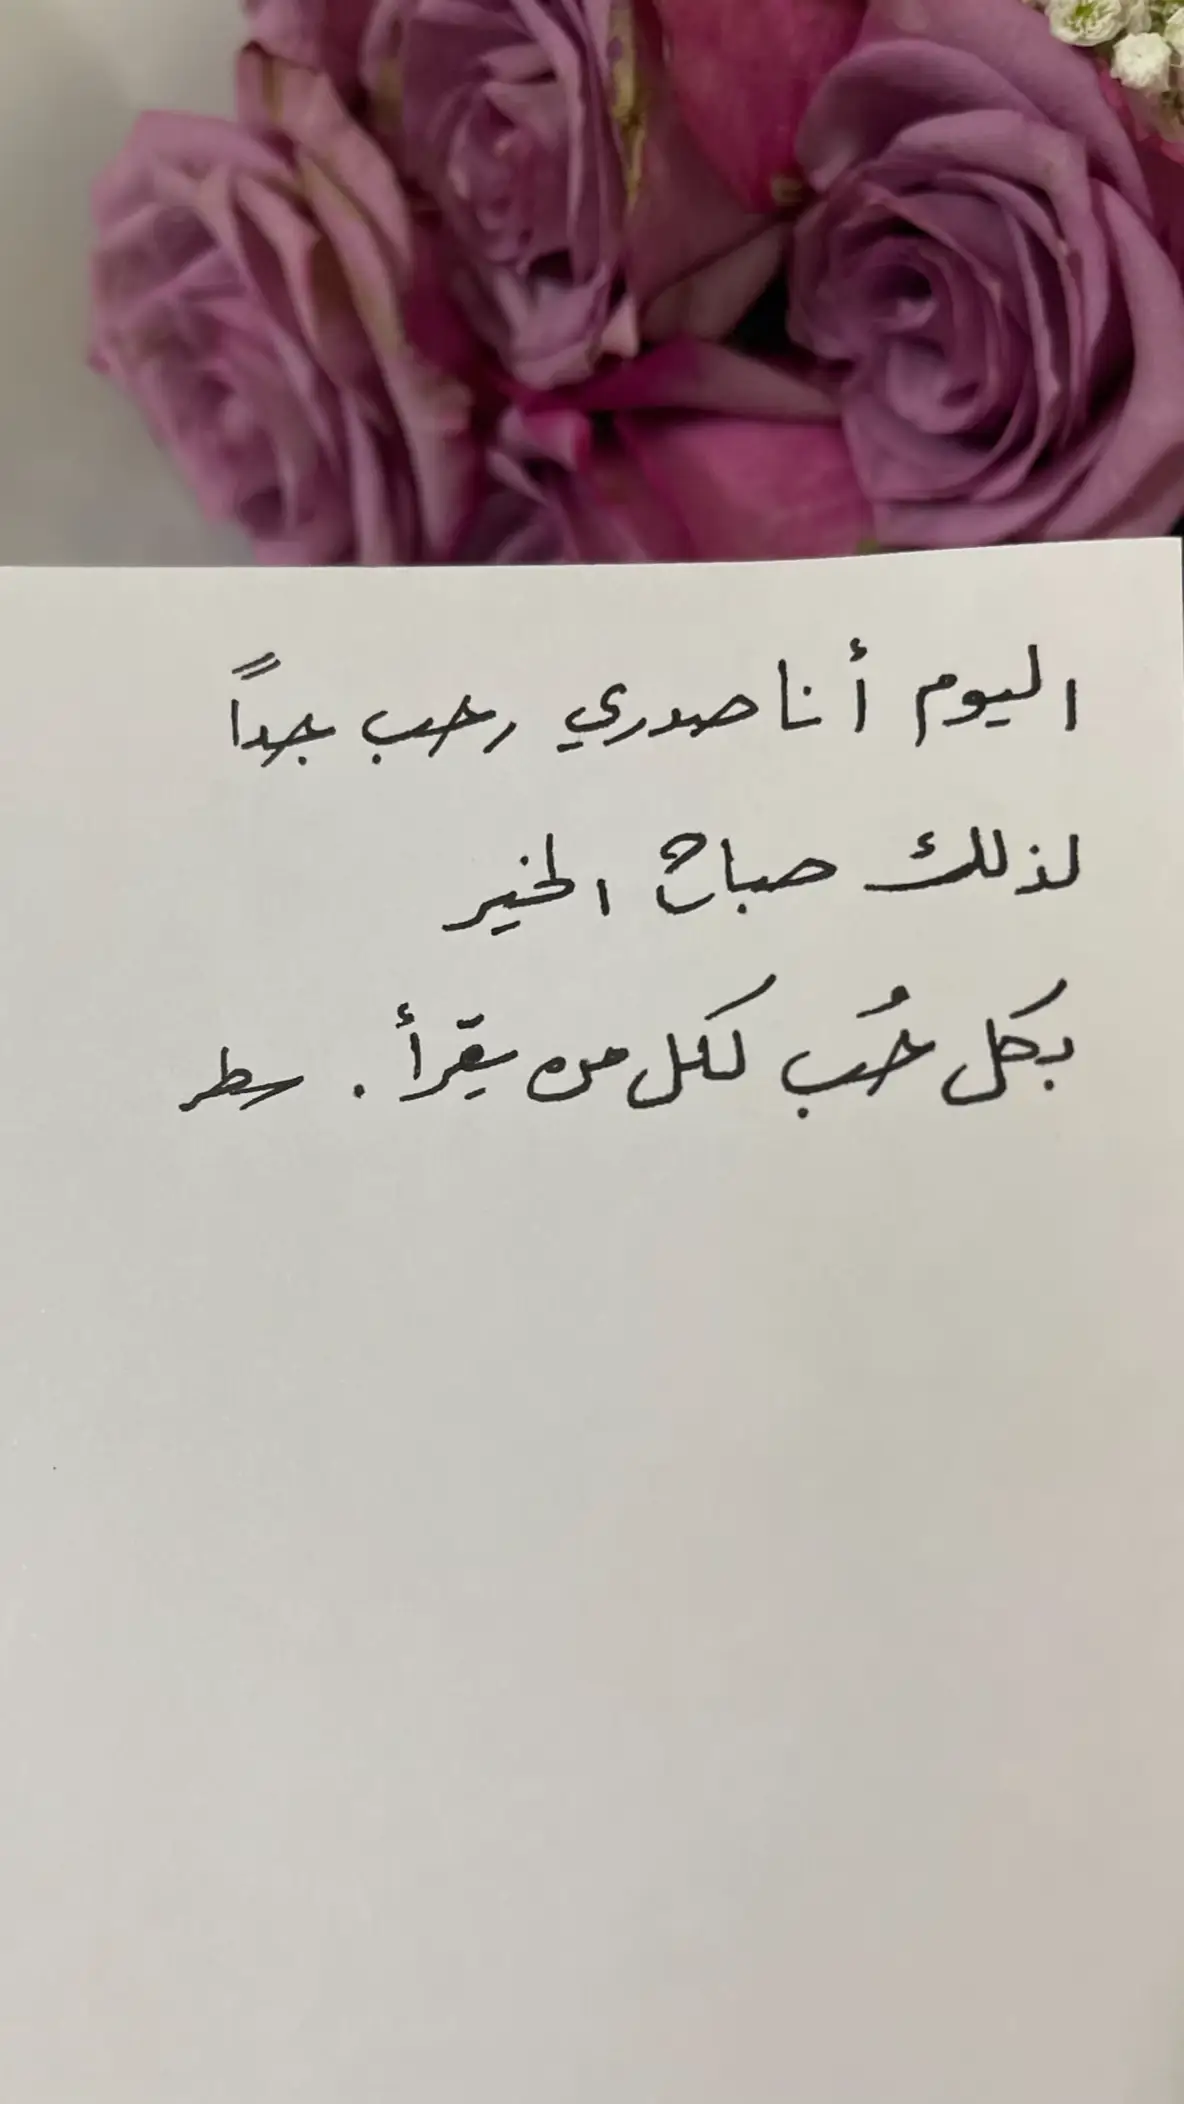 اليوم أنا صدري رحب جداً
لذلك صباح الخير
بكل حُب لكل من يقرأ . سطر